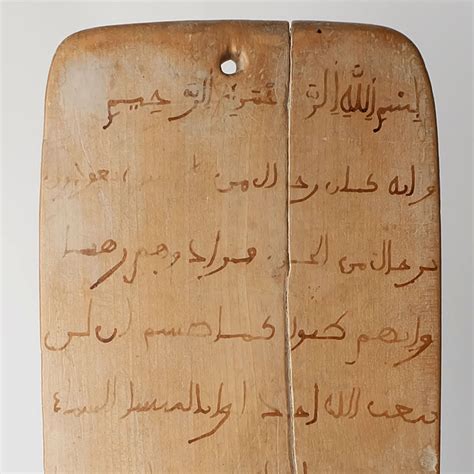 بسم الله الرحمن الرحيم
وانه كان رجال من يعوذون
برجال من الجن فزادوهم رهقا
وانهم ظنوا كما ظننتم ان لن
يبعث الله احدا وانا لمسنا السماء